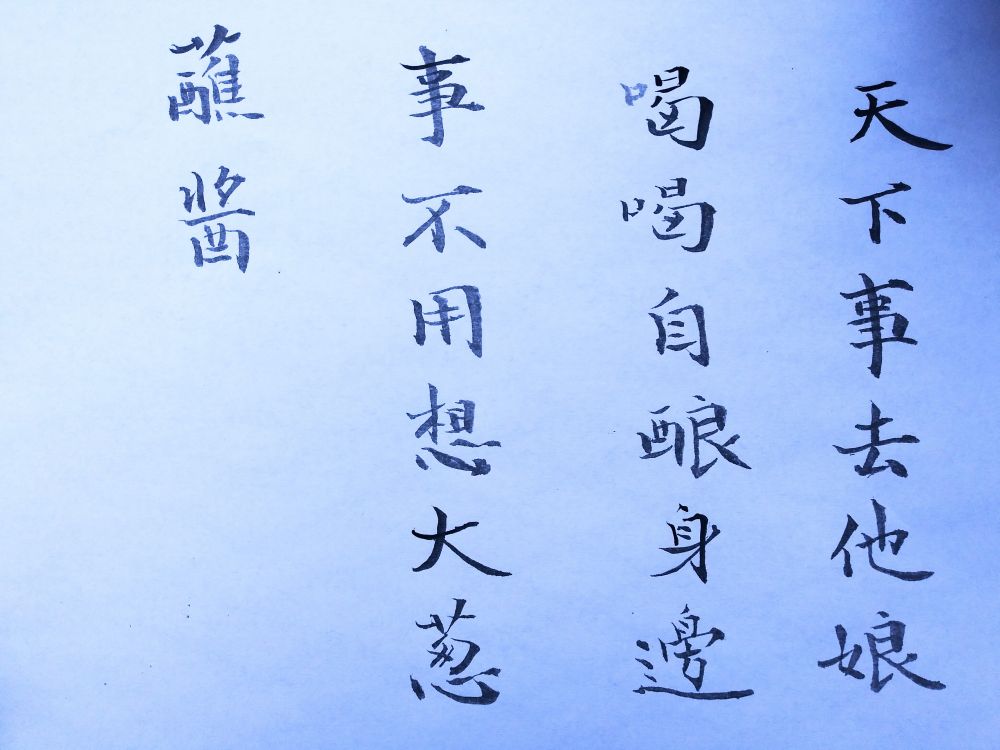 天下事去他娘
喝喝自酿身邊
事不用想大葱
蘸醬